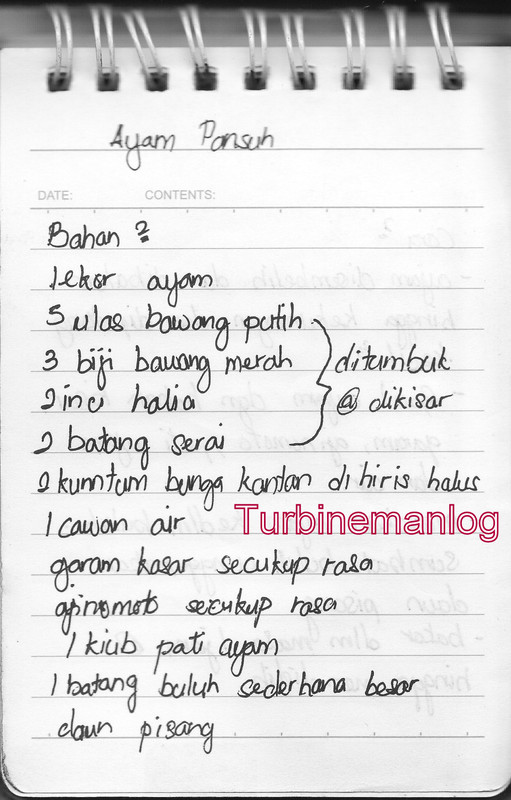 Ayam Pansuh
DATE: CONTENTS:
Bahan :
1 ekor ayam
5 ulas bawang putih
3 biji bawang merah
2 inci halia
2 batang serai
ditumbuk
@ dikisar
2 kumtum bunga kantan dihiris halus
1 cawan air
Turbinemanlog
garam kasar secukup rasa
ajinomoto secukup rasa
1 kiub pati ayam
1 batang buluh sederhana besar
daun pisang